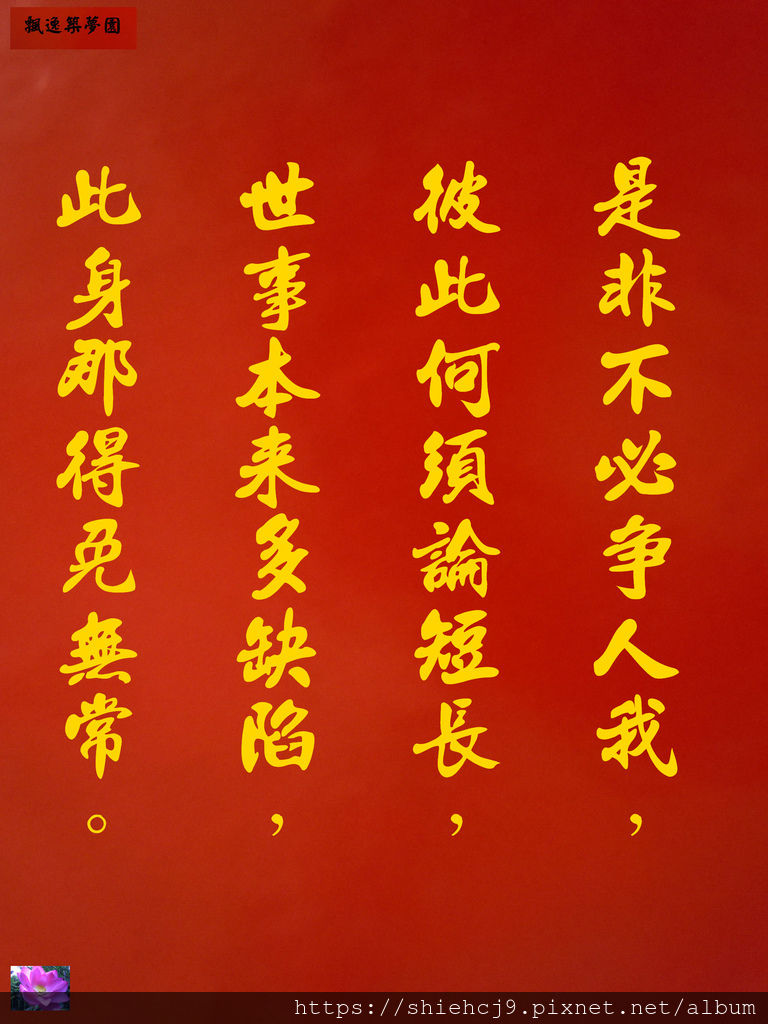 飄逸築夢園
是非不必争人我，
彼此何須論短長，
世事本来多缺陷，
此身那得免無常。
https://shiehcj9.pixnet.net/album